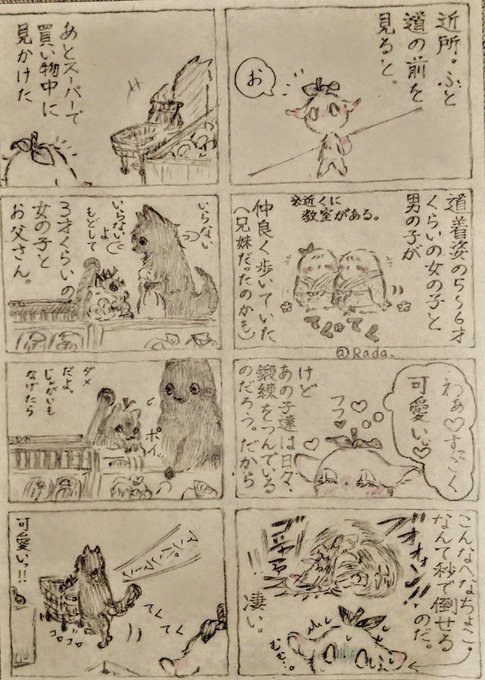 近所。ふと
道の前を
見ると。
お
道着姿の5〜6才
くらいの女の子と
男の子が
※近くに
教室がある。
仲良く歩いていた
(兄妹だったのかも)
てくてく
@Rada.
わぁ♡すごく
可愛い♡
フフ
けど
あの子達は日々、
鍛練をつんでいる
のだろう。だから
こんなへなちょこ。
なんて秒で倒せる
のだ。
凄い。
あとスーパーで
買い物中に
見かけた
いらない
いらないよ
もどして
3才くらいの
女の子と
お父さん。
ダメ
だよ。
じゃがいも
なげたら
ポイ
可愛い!!